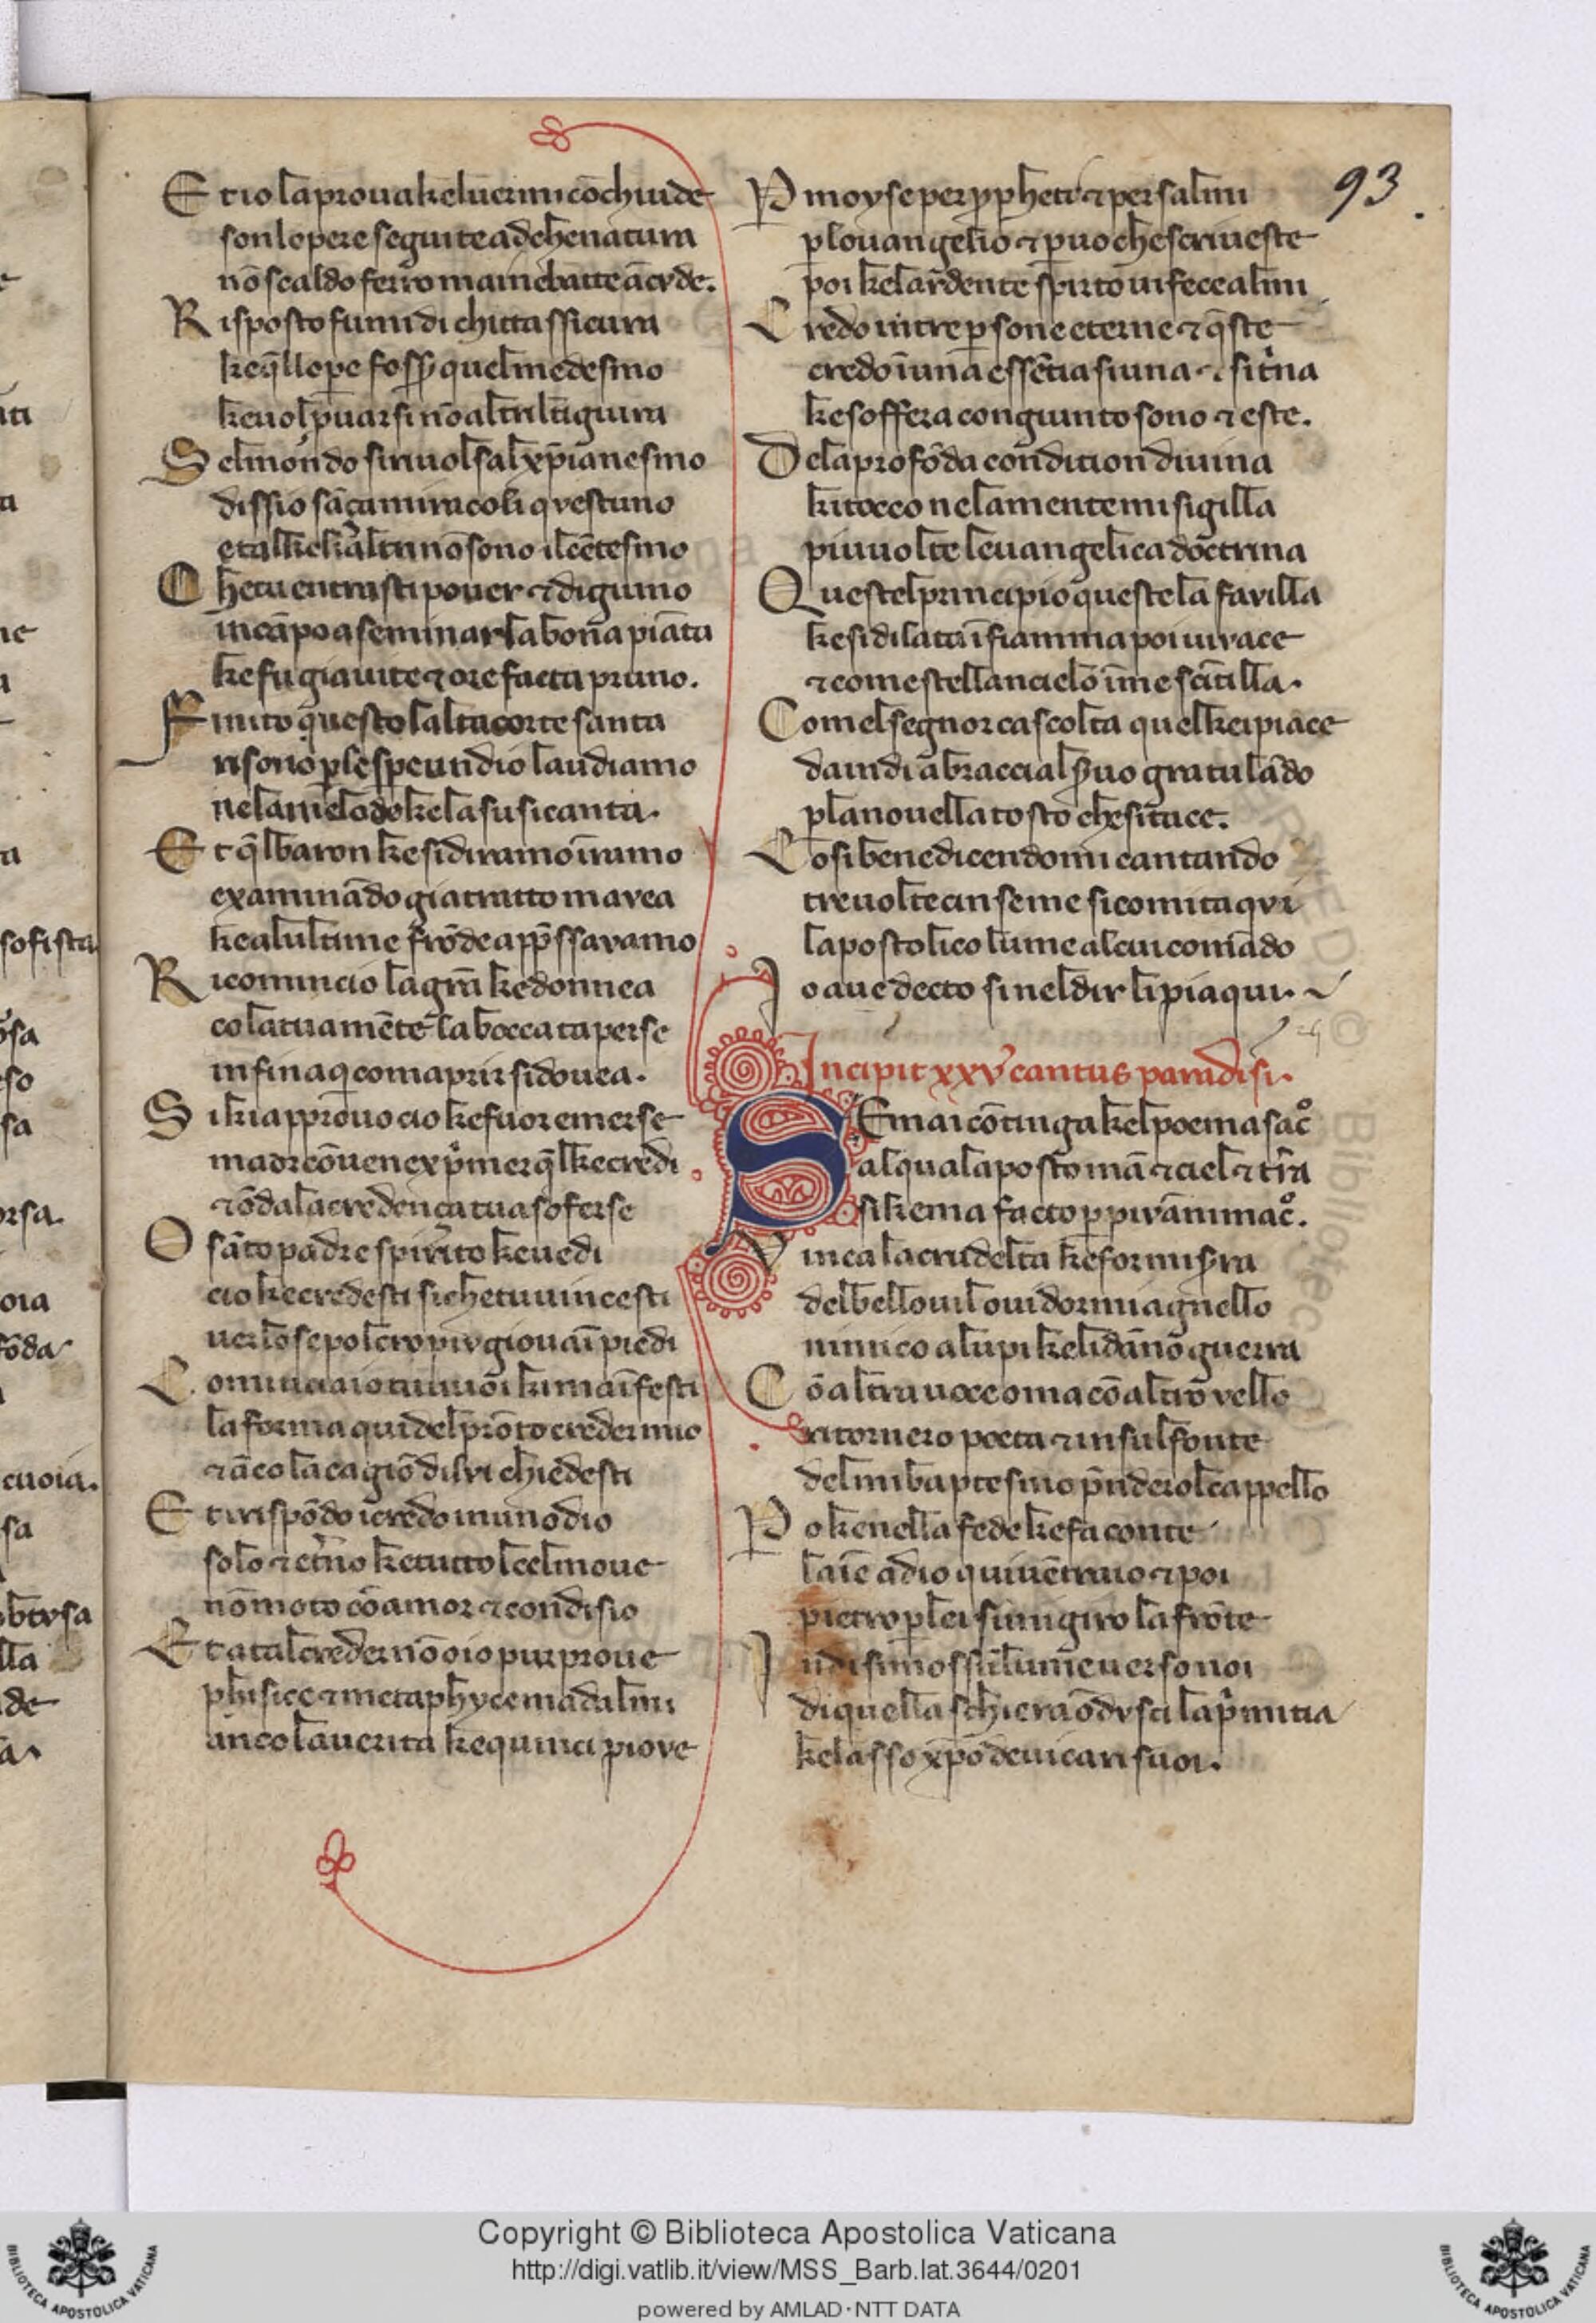 93
Et io la prova kel ver mi cōchiude
son lopere seguite ad che natura
nō scaldo ferro mai ne batte ācvde.
Risposto fumi di chi tassicura
ke q̄llope foss̄ quelmedesmo
ke vol p̄uarsi nō altri ltigiura
Selmondo si rivolsal xp̄ianesmo
dissio sāça miracoli qvestuno
e tal kelialtri nō sono ilcētesmo
Che tu entrasti pover ⁊ digiuno
in cāpo a seminar la bona piāta
ke fu gia vite ⁊ ore facta pruno.
Finito questo lalta corte santa
risono p̱ le spe un dio laudiamo
ne la melode ke la su si canta.
Et q̄l baron ke si di ramo ī ramo
examinādo gia tratto mavea
ke alultime frōde app̄ssavamo
Ricomincio la grā ke donnea
co la tua mēte la bocca taperse
infina q comaprir si dovea.
Si kia pprouo cio ke fuor emerse
ma or cōven exp̄mer q̄l ke credi
⁊ ōda la credença tua soferse
O sāto padre spirito ke vedi
cio ke credesti si che tu vincesti
ver lo sepolcro piv giovāi piedi
Comincia io tu vuoi ki maīfesti
la forma qui del prōto creder mio
⁊ āco la cagiō di lvi chiedesti
Et io rispōdo i credo in uno dio
solo ⁊ et̄no ke tutto lcel move
nō moto cō amor ⁊ con disio
Et a tal creder nō o io pur prove
phisice ⁊ metaphyce ma dalmi
anco la verita ke quinci piove
P moyse per p̱pheti ⁊ per salmi
p̱ louangelio ⁊ p̱ vo che scriveste
poi ke lardente sp̄irto vi fece almi
Credo in tre p̱sone eterne ⁊ q̄ste
credo ī una essētia si una ⁊ si t̄na
ke soffera congiunto sono ⁊ este.
De la profōda condition divina
ki tocco ne la mente mi sigilla
piu volte levangelica doctrina
Questel principio queste la favilla
ke si dilata ī fiamma poi vivace
⁊ come stellan cielo ī me scītilla.
Comel segnor cascolta quel kei piace
da indi abraccial s̄vo gratulādo
p̱ la novella tosto chesi tace.
Cosi benedicendomi cantando
tre volte cinse me si comi taqvi
lapostolico lume al cui comādo
Io ave decto si nel dir li piaqui.
Incipit xxv cantus paradisi.
SE mai cōtinga kel poema sac̊
al qual a posto mā ⁊ ciel ⁊ t̄ra
si ke ma facto p̱ piv anni mac̊.
Vinca la crudelta ke for mi s̄ra
del bello vil ovi dormi agnello
nimico a lupi ke li dānō guerra
Cō altra voce oma cō altro vello
ritornero poeta ⁊ in sul fonte
del mi baptesmo p̄nderol cappello
Po ke nella fede ke fa conte
laīe a dio quivi ētrai io ⁊ poi
pietro p̱ lei si mi giro la frōte
Indi si mossi ī lume verso noi
di quella schiera ōdvsci la p̄mitia
ke lasso xp̄o de vicari suoi.
Copyright © Biblioteca Apostolica Vaticana
http://digi.vatlib.it/view/MSS_Barb.lat.3644/0201
powered by AMLAD·NTT DATA